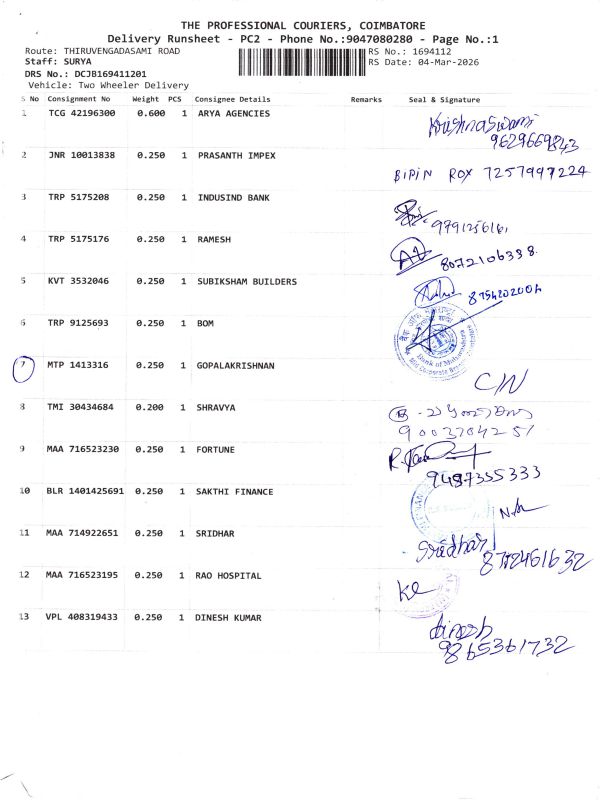 THE PROFESSIONAL COURIERS, COIMBATORE
Delivery Runsheet - PC2 - Phone No.:9047080280 - Page No.:1
Route: THIRUVENGADASAMI ROAD RS No.: 1694112
Staff: SURYA RS Date: 04-Mar-2026
DRS No.: DCJB169411201
Vehicle: Two Wheeler Delivery
S No Consignment No Weight PCS Consignee Details Remarks Seal & Signature
1 TCG 42196300 0.600 1 ARYA AGENCIES Krishnaswami
9629669843
2 JNR 10013838 0.250 1 PRASANTH IMPEX
BIPIN ROX 7257997224
3 TRP 5175208 0.250 1 INDUSIND BANK
4 TRP 5175176 0.250 1 RAMESH
8072106338
5 KVT 3532046 0.250 1 SUBIKSHAM BUILDERS
6 TRP 9125693 0.250 1 BOM
Bank of Maharashtra
7 MTP 1413316 0.250 1 GOPALAKRISHNAN
C/N
8 TMI 30434684 0.200 1 SHRAVYA
9003704251
9 MAA 716523230 0.250 1 FORTUNE
9487355333
10 BLR 1401425691 0.250 1 SAKTHI FINANCE
11 MAA 714922651 0.250 1 SRIDHAR Sridhar
12 MAA 716523195 0.250 1 RAO HOSPITAL
13 VPL 408319433 0.250 1 DINESH KUMAR dinesh
9865361732